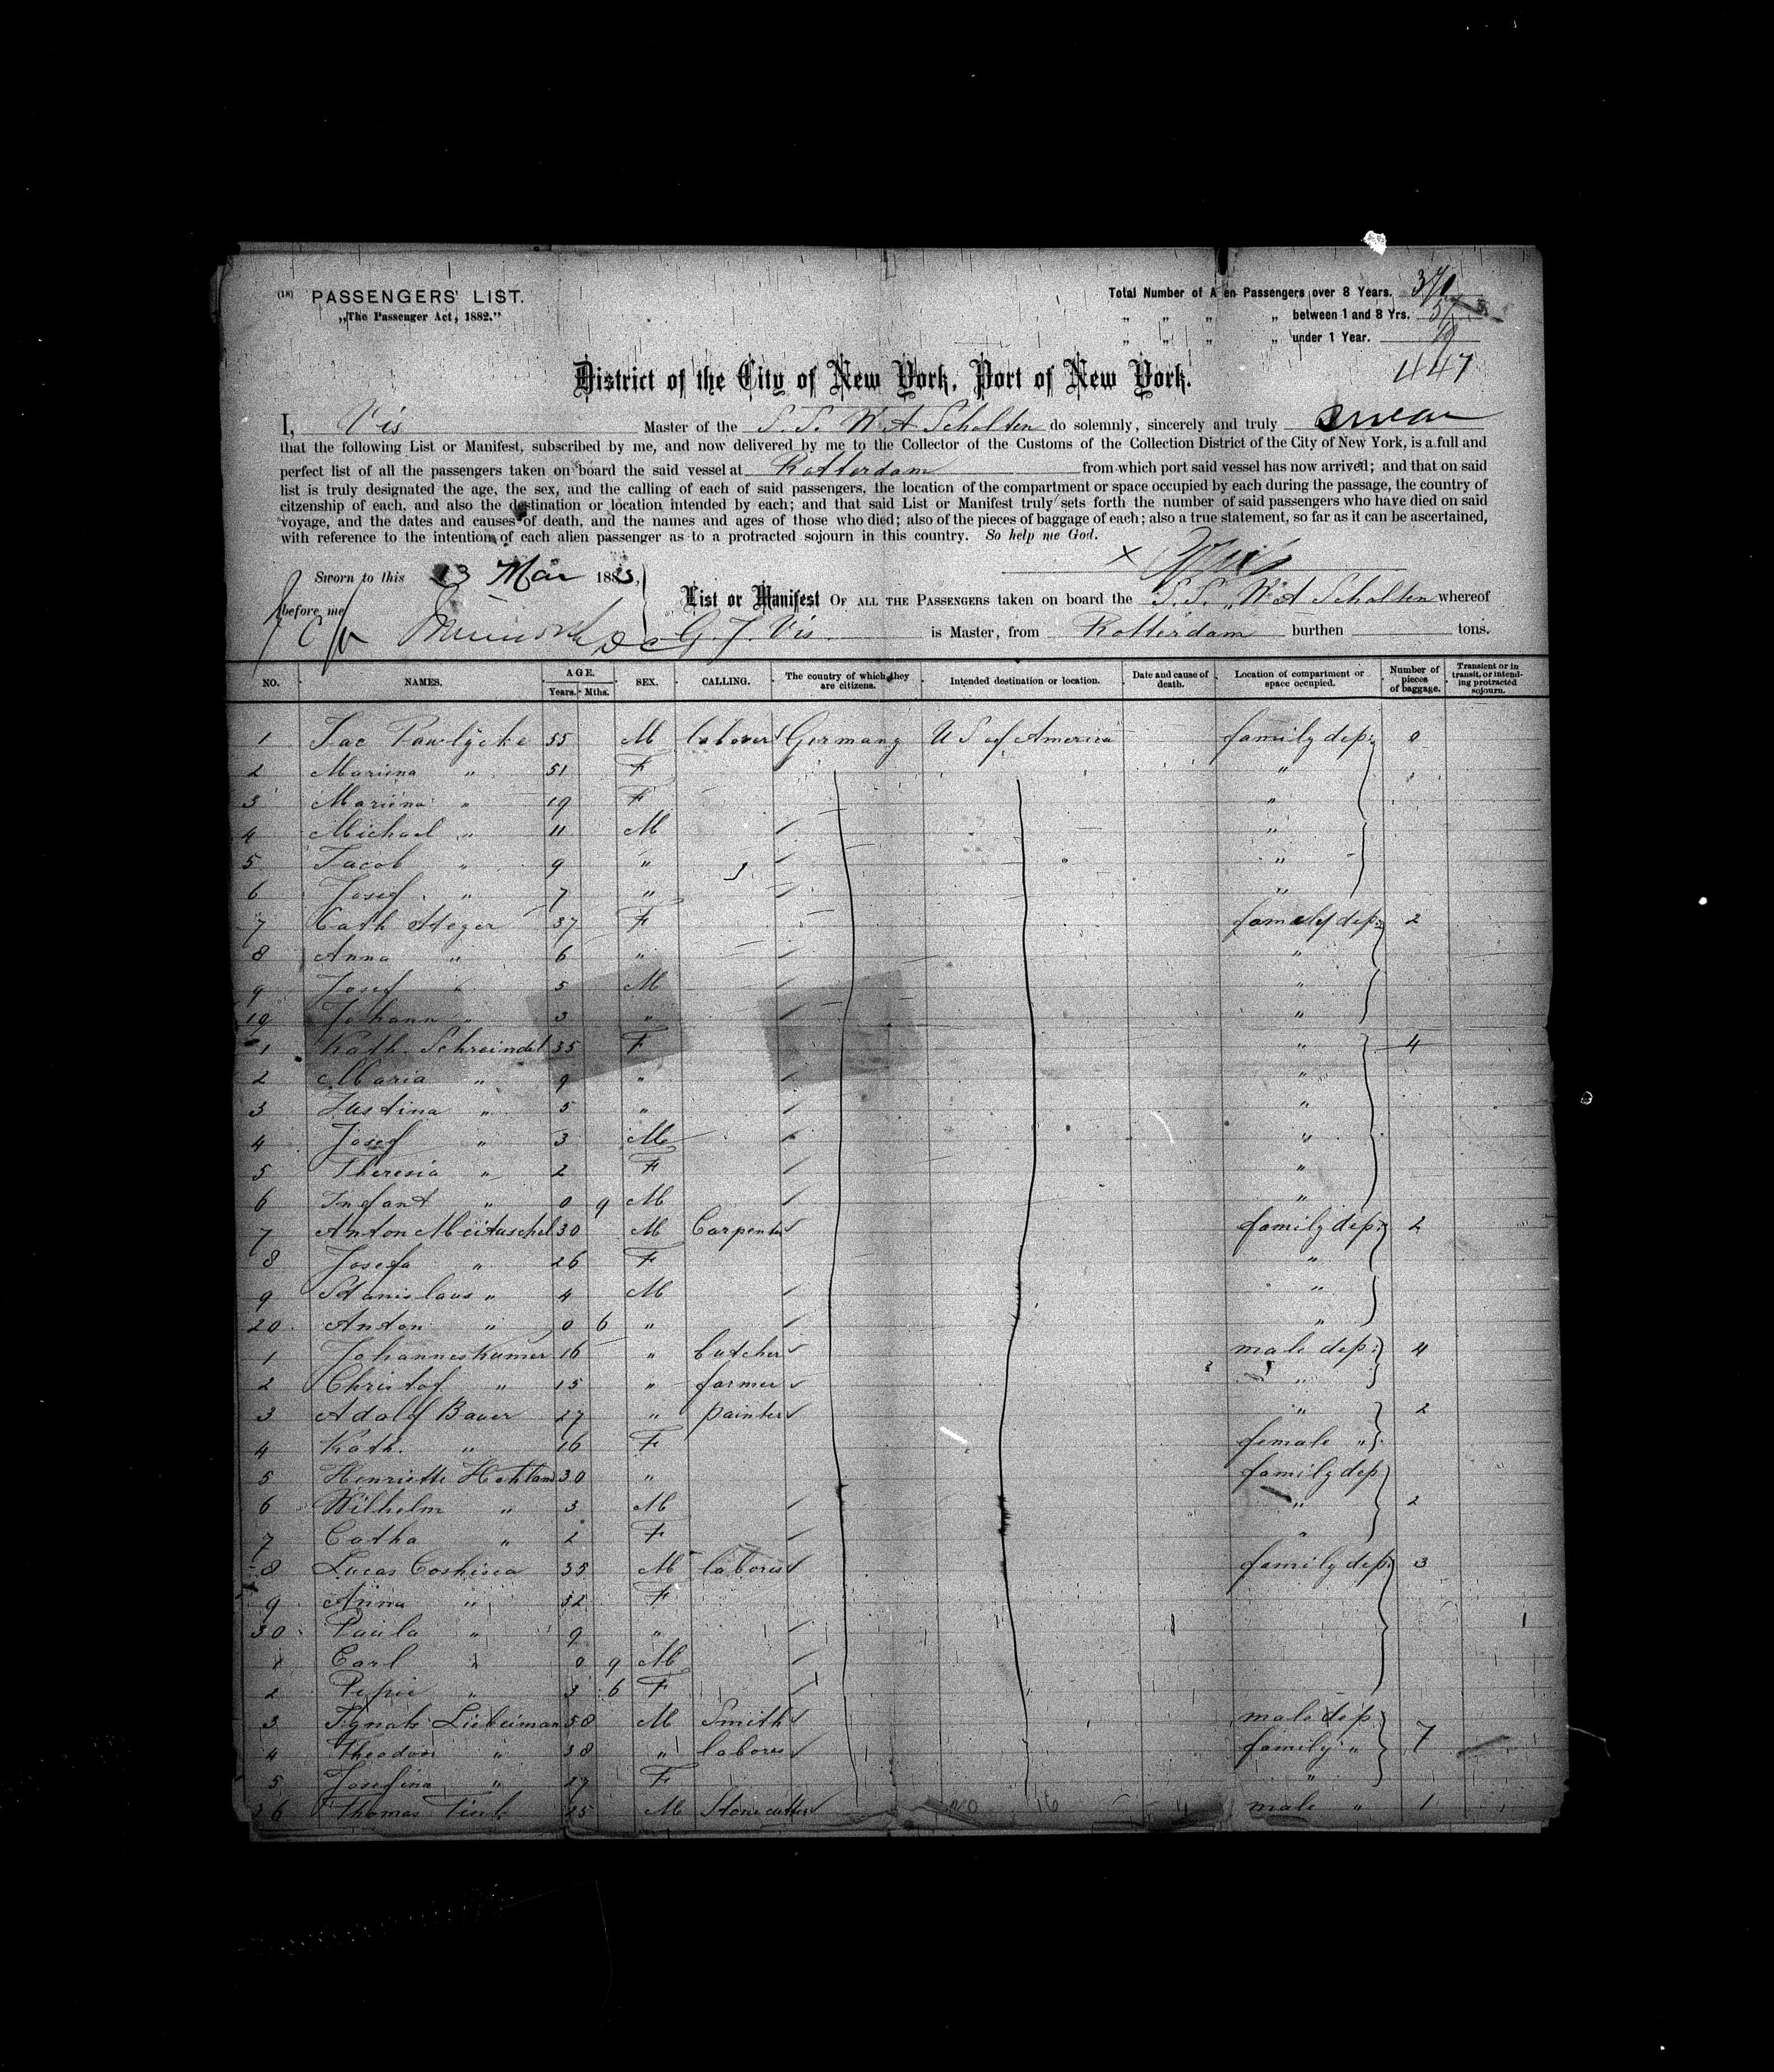 (18) PASSENGERS' LIST.
„The Passenger Act, 1882."
Total Number of Alien Passengers over 8 Years. 371
„ „ „ „ between 1 and 8 Yrs. 57
„ „ „ „ under 1 Year. 19
447
District of the City of New York, Port of New York.
I, Vis Master of the S.S. W A Scholten do solemnly, sincerely and truly swear
that the following List or Manifest, subscribed by me, and now delivered by me to the Collector of the Customs of the Collection District of the City of New York, is a full and
perfect list of all the passengers taken on board the said vessel at Rotterdam from which port said vessel has now arrived; and that on said
list is truly designated the age, the sex, and the calling of each of said passengers, the location of the compartment or space occupied by each during the passage, the country of
citzenship of each, and also the destination or location intended by each; and that said List or Manifest truly sets forth the number of said passengers who have died on said
voyage, and the dates and causes of death, and the names and ages of those who died; also of the pieces of baggage of each; also a true statement, so far as it can be ascertained,
with reference to the intention of each alien passenger as to a protracted sojourn in this country. So help me God.
x GVis
Sworn to this 13 Mar 1883,
before me
List or Manifest OF ALL THE PASSENGERS taken on board the S.S. „W A Scholten whereof
G. J. Vis is Master, from Rotterdam burthen tons.
NO. NAMES. AGE. Years. Mths. SEX. CALLING. The country of which they are citizens. Intended destination or location. Date and cause of death. Location of compartment or space occupied. Number of pieces of baggage. Transient or in transit, or intending protracted sojourn.
1 Jac Pawlycke 55 M laborer Germany U S of America family dep: 0
2 Marina „ 51 F „
3 Marina „ 19 F „
4 Michael „ 11 M „
5 Jacob „ 9 „ „
6 Josef „ 7 „ „
7 Cath Steger 37 F family dep: 2
8 Anna „ 6 „ „
9 Josef „ 5 M „
10 Johann „ 3 „ „
1 Kath. Schreindel 35 F „ 4
2 Maria „ 9 „ „
3 Justina „ 5 „ „
4 Josef „ 3 M „
5 Theresia „ 2 F „
6 Infant „ 0 9 M „
7 Anton Meitaschel 30 M Carpenter family dep: 2
8 Josefa „ 26 F „
9 Stanislaus „ 4 M „
20 Anton „ 0 6 „ „
1 Johannes Kumer 16 „ butcher male dep: 4
2 Christof „ 15 „ farmer „
3 Adolf Bauer 27 „ painter „ 2
4 Kath. „ 16 F female „
5 Henriette Hohland 30 „ family dep
6 Wilhelm „ 3 M „ 2
7 Catha „ 2 F „
8 Lucas Coshisca 35 M laborer family dep. 3
9 Anna „ 32 F
30 Paula „ 9 „
1 Carl „ 0 9 M
2 Pepie „ 3 6 F
3 Ignatz Liebeiman 58 M Smith male dep
4 Theodor „ 38 „ laborer family „ 7
5 Josefina „ 27 F „
36 Thomas Fink 25 M Stone cutter male „ 1